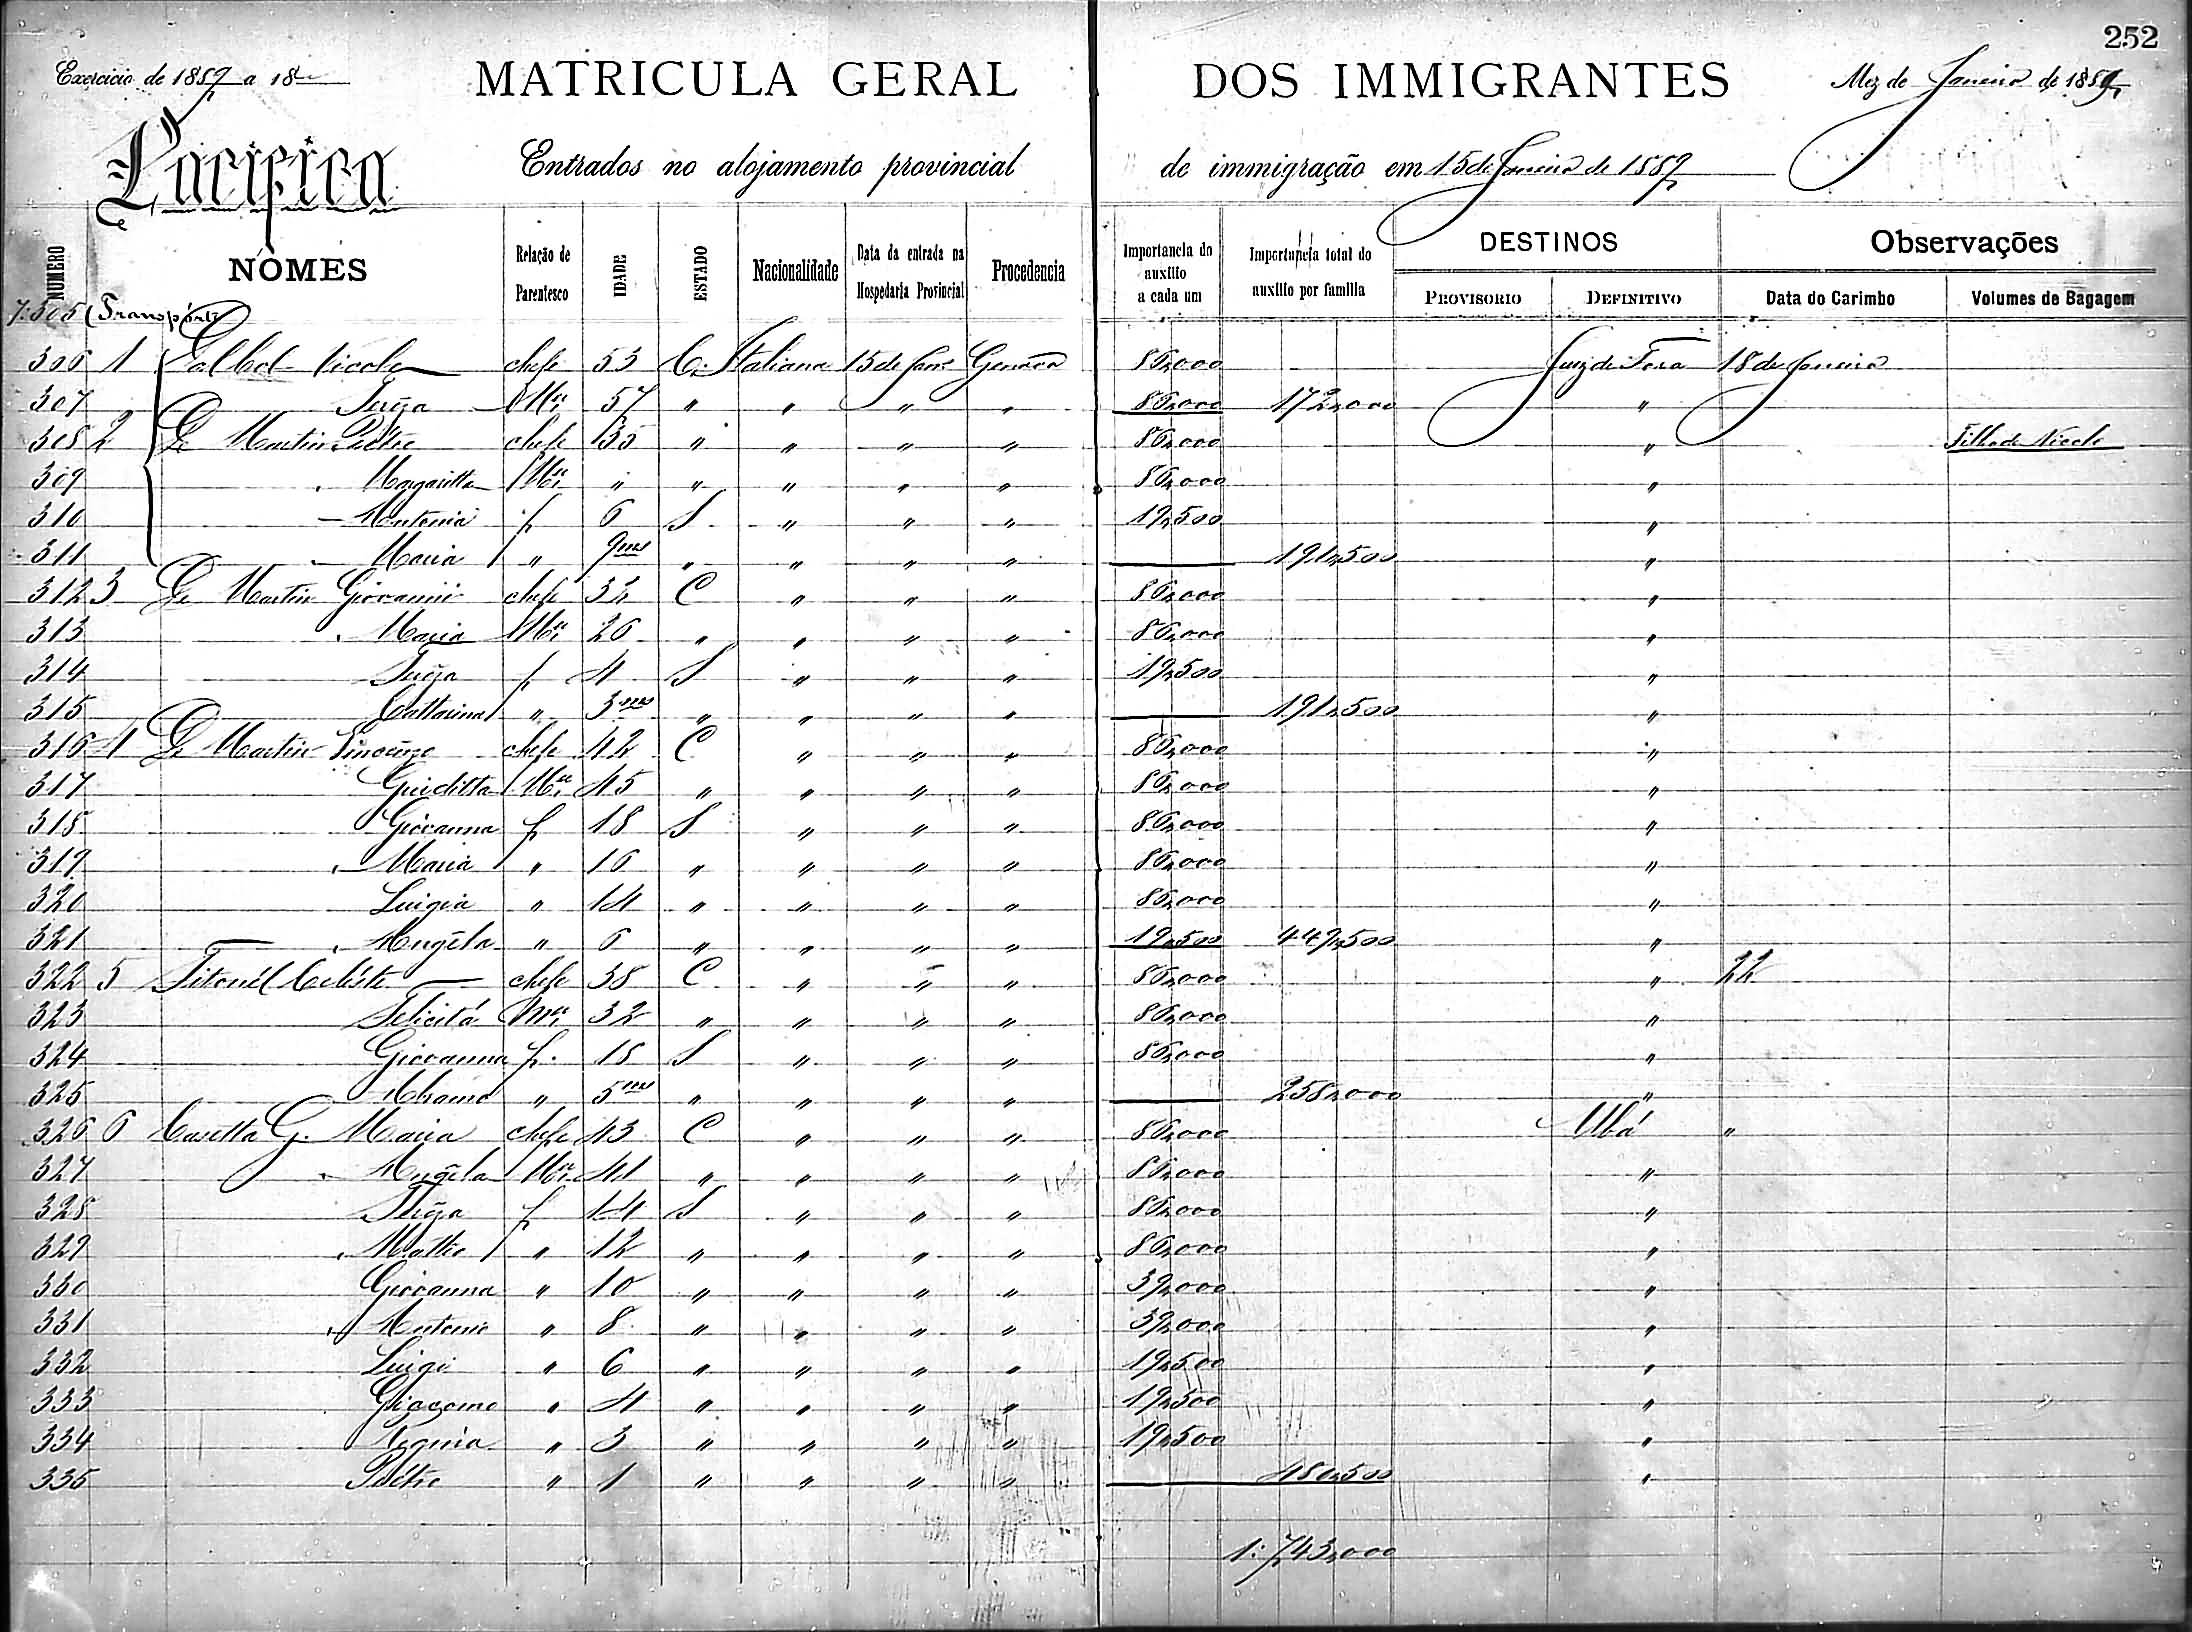 252
Exercicio de 1889 a 18
MATRICULA GERAL DOS IMMIGRANTES
Mez de Janeiro de 1889
Pacifico
Entrados no alojamento provincial de immigração em 15 de Janeiro de 1889
NUMERO NOMES Relação de Parentesco IDADE ESTADO Nacionalidade Data da entrada na Hospedaria Provincial Procedencia Importancia do auxilio a cada um Importancia total do auxilio por familia DESTINOS PROVISORIO DEFINITIVO Observações Data do Carimbo Volumes de Bagagem
7:305 Transporte
306 1 chefe 53 C. Italiana 15 de Jan. Genova 86,000 Juiz de Fora 18 de Janeiro
307 Tereza Mer 57 " " " " 86,000 172,000 "
308 2 De Martin Pietro chefe 35 " " " " 86,000 " Filho de Nicolo
309 Margaritta Mer " " " " " 86,000 "
310 Antonia f 6 S " " " 19,500 "
311 Maria " 9 mes " " " " 191,500 "
312 3 De Martin Giovanni chefe 32 C " " " 86,000 "
313 Maria Mer 26 " " " " 86,000 "
314 Tereza f 4 S " " " 19,500 "
315 Cattarina " 3 mes " " " " 191,500 "
316 4 De Martin Vincenzo chefe 42 C " " " 86,000 "
317 Guiditta Mer 45 " " " " 86,000 "
318 Giovanna f 18 S " " " 86,000 "
319 Maria " 16 " " " " 86,000 "
320 Luigia " 14 " " " " 86,000 "
321 Angela " 6 " " " " 19,500 449,500 "
322 5 Celeste chefe 38 C " " " 86,000 " 22
323 Felicita Mer 32 " " " " 86,000 "
324 Giovanna f. 18 S " " " 86,000 "
325 " 5 mes " " " " 258,000 "
326 6 Casetta G. Maria chefe 43 C " " " 86,000 Ubá "
327 Angela Mer 41 " " " " 86,000 "
328 Tereza f 14 S " " " 86,000 "
329 Matteo " 12 " " " " 86,000 "
330 Giovanna " 10 " " " " 39,000 "
331 Antonio " 8 " " " " 39,000 "
332 Luigi " 6 " " " " 19,500 "
333 Giacomo " 4 " " " " 19,500 "
334 " 3 " " " " 19,500 "
335 Pietro " 1 " " " " 480,500 "
1:743,000